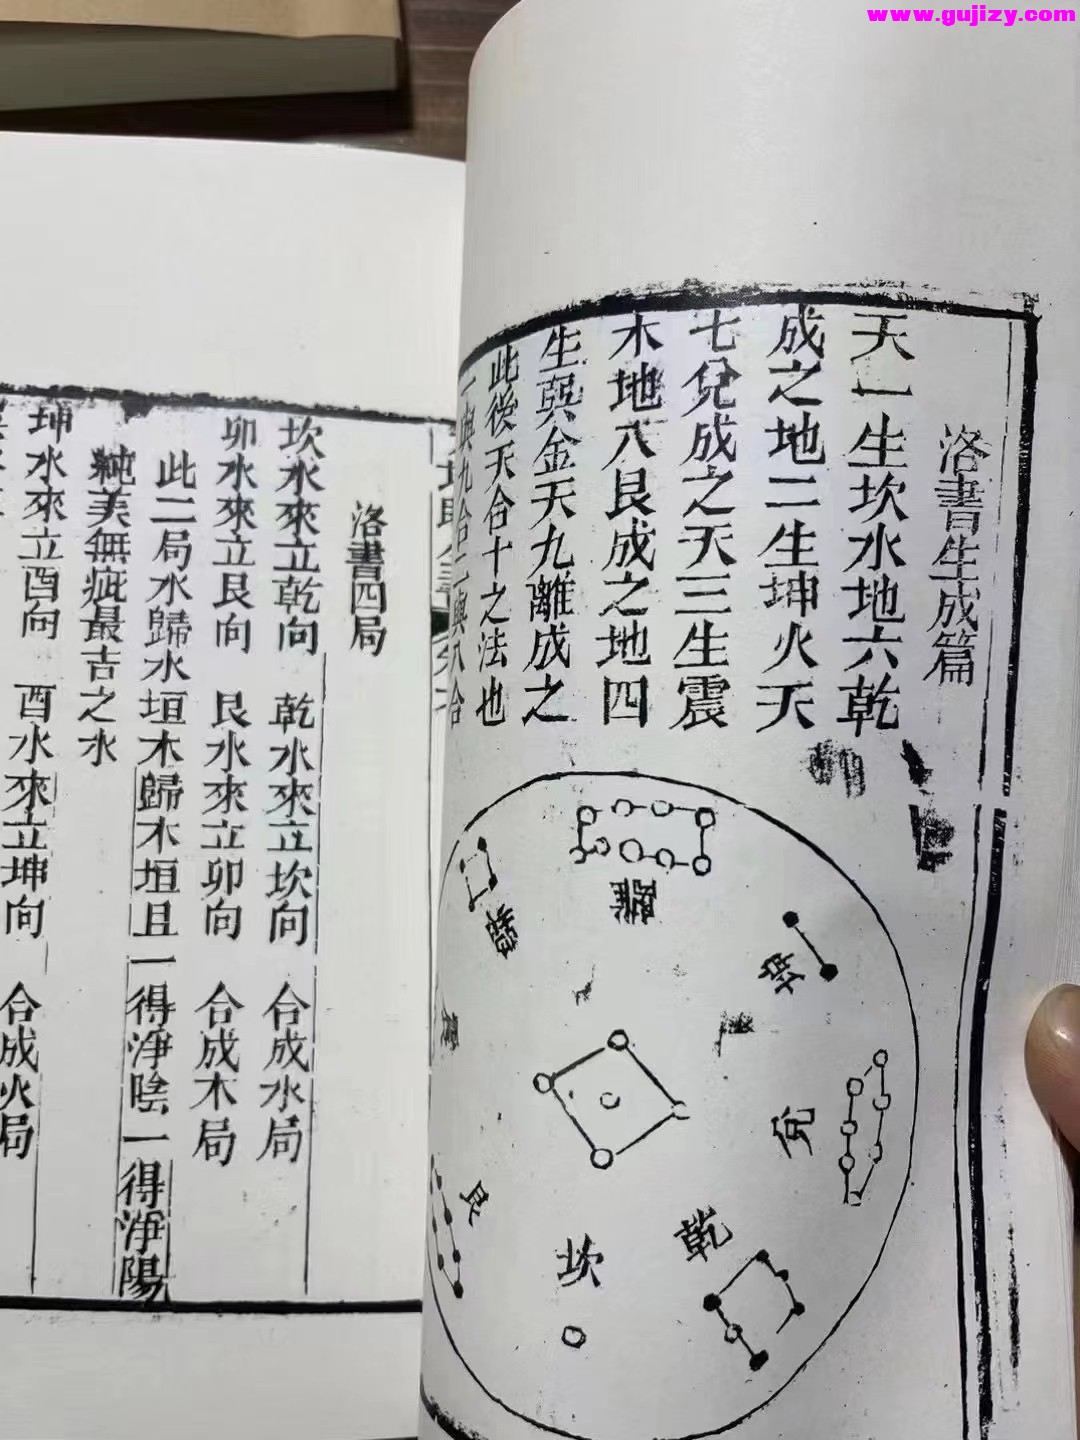 www.gujizy.com
洛書生成篇
天一生坎水地六乾
成之地二生坤火天
七兌成之天三生震
木地八艮成之地四
生巽金天九離成之
此後天合十之法也
一與九合二與八合
離
坤
兌
乾
坎
艮
震
巽
洛書四局
坎水來立乾向 乾水來立坎向 合成水局
卯水來立艮向 艮水來立卯向 合成木局
此二局水歸水垣木歸木垣且一得淨陰一得淨陽
純美無疵最吉之水
坤水來立酉向 酉水來立坤向 合成火局